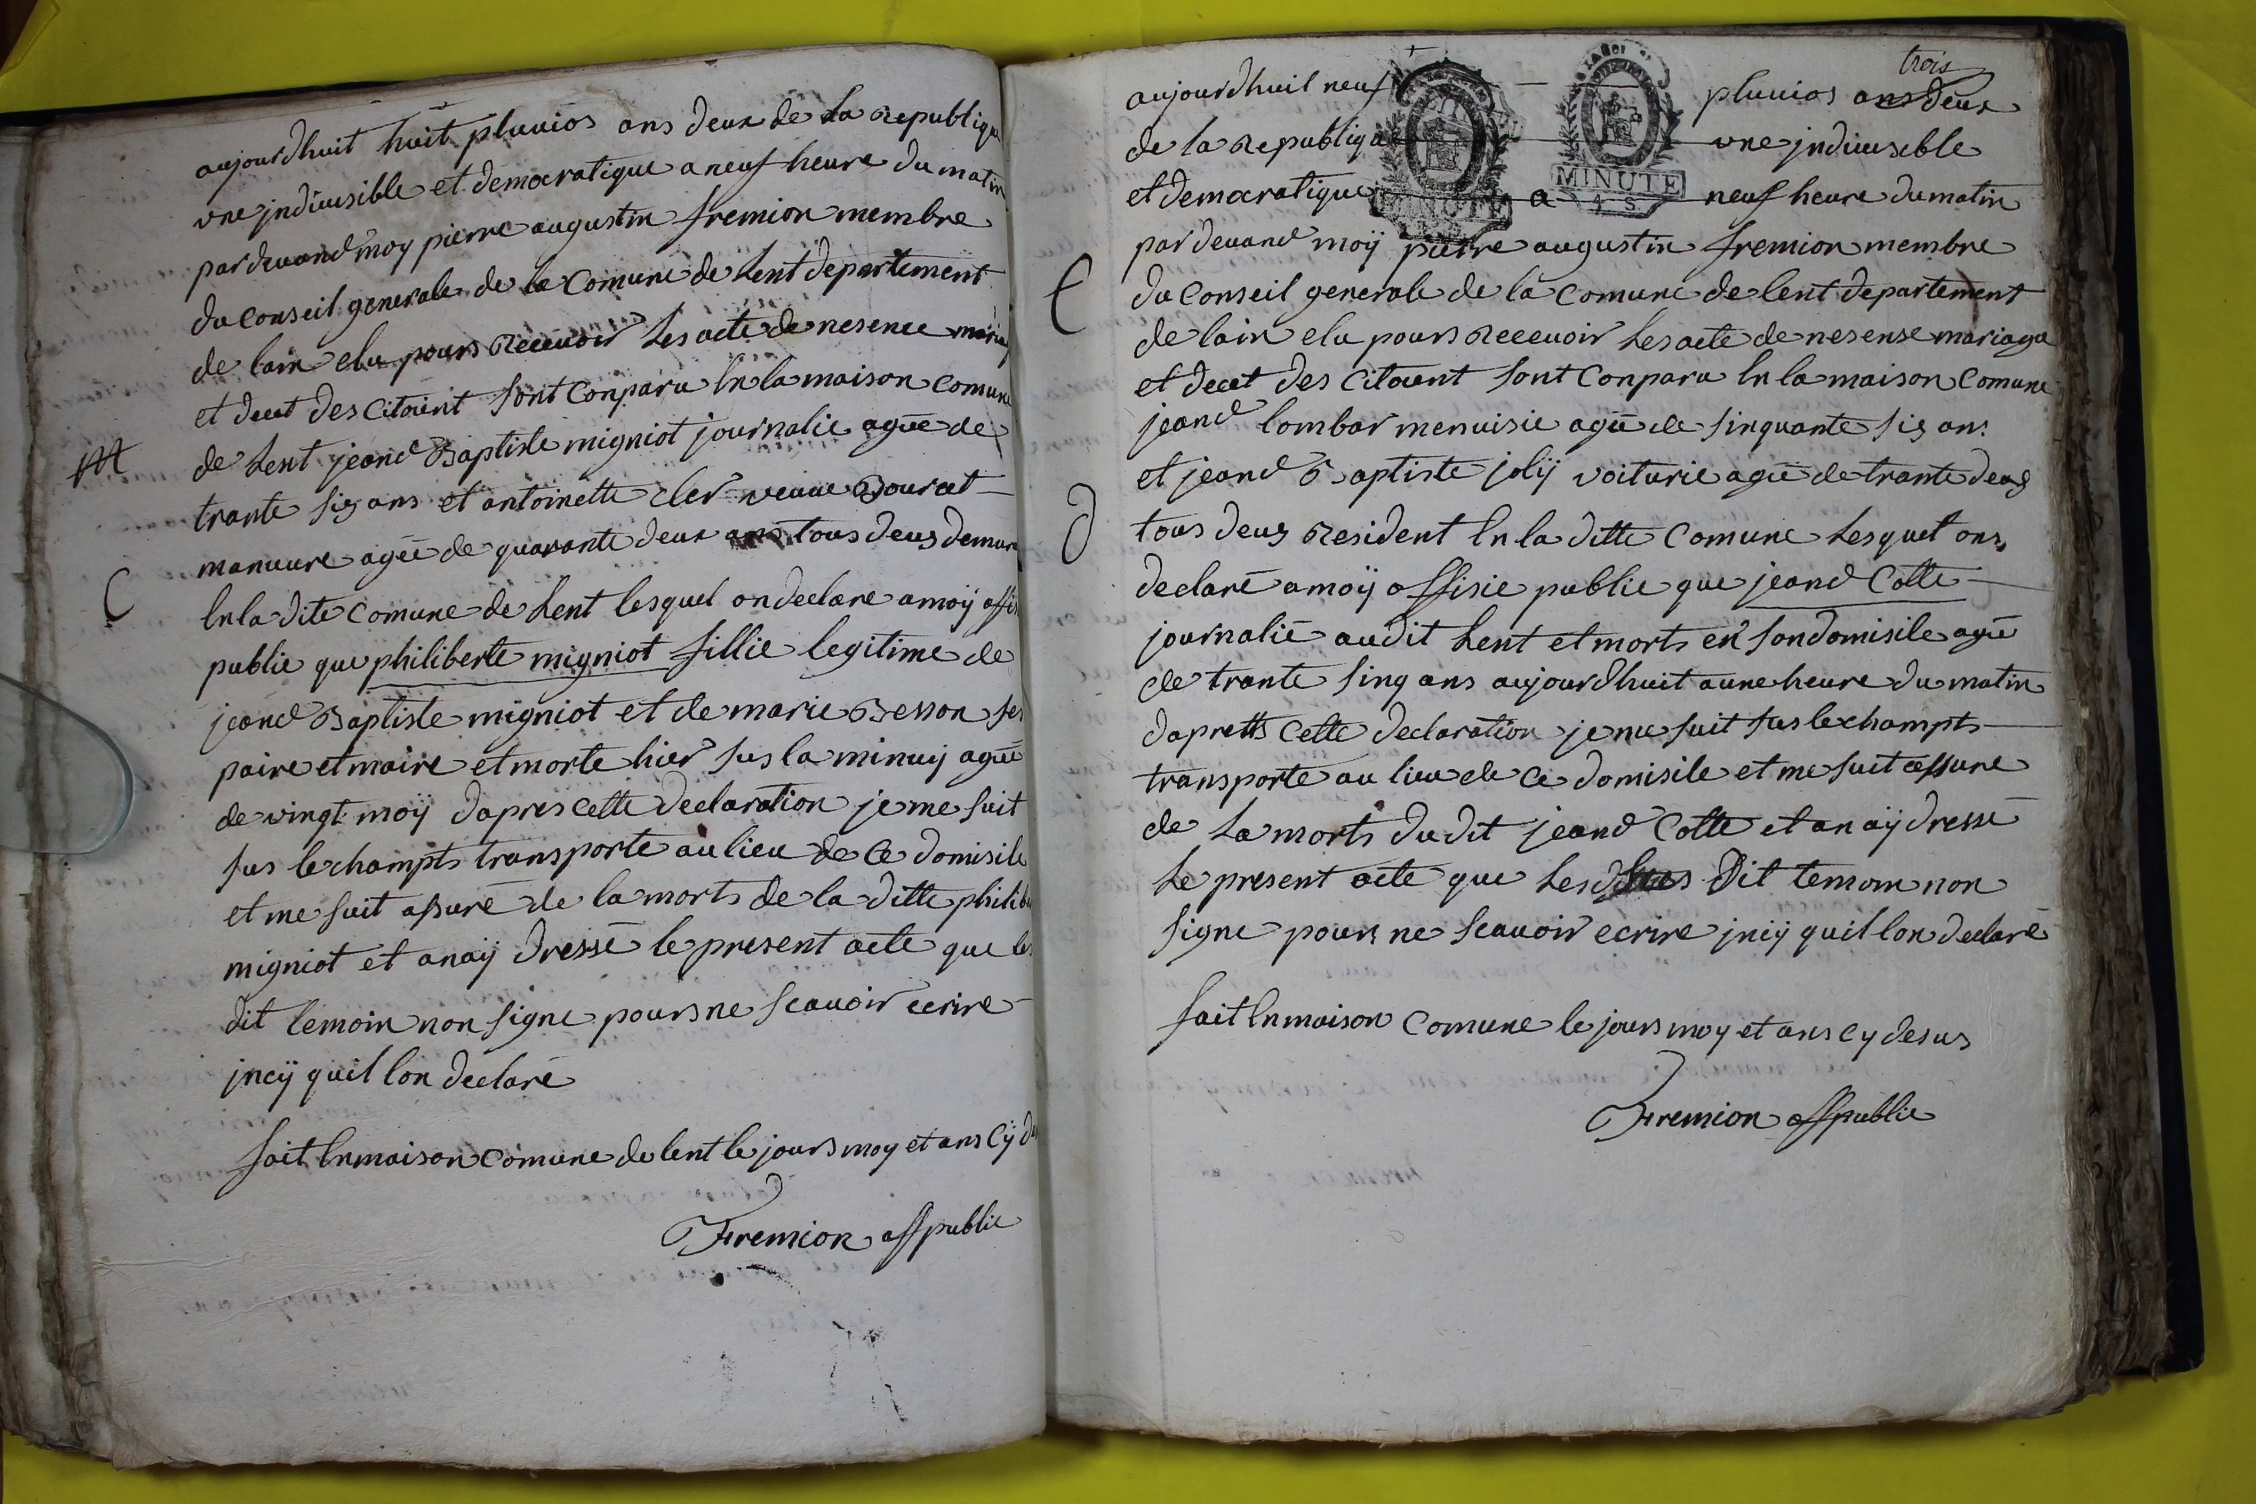 aujourdhuit huit pluuios ans deux de la Republique
vne jndiuisible et democratique a neuf heure du matin
par deuand moy pierre augustin fremion membre
du conseil generale de la comune de Lent departement
de lain elu pours Receuoir Les acte de nesence mariag
et decet des citoient sont conparu En la maison comune
m de Lent jeand Baptiste migniot journalie agée de
trante sis ans et antoinette cler veuue Bourcet
manuure agée de quarante deux ans tous deus demure
C En la dite comune de Lent lesquel on declare a moÿ offis
public que philiberte migniot fillie legitime de
jeand Baptiste migniot et de marie Besson ses
paire et maire et morte hier sus la minuij agée
de vingt moÿ dapres cette declaration je me suit
sus le champts transporte au lieu de ce domisile
et me suit assuré de la morts de la ditte philibe
migniot et anaÿ dressé le present acte que les
dit temoin non signe pours ne scauoir ecrire
jncÿ quil lon declaré
fait En maison comune de lent le jours moy et ans cÿ d
Fremion offpublic
trois
aujourdhuil neuf pluuios ans deux
de la Republique vne jndiuisible
MINUTE
4 S
et democratique a neuf heure du matin
MINUTE
par deuand moÿ pierre augustin fremion membre
E du conseil generale de la comune de lent departement
de lain elu pours Receuoir Les acte de nesense mariage
et decet des citoient sont conparu En la maison comune
jeand lombar menuisie agé de sinquante sis ans
et jeand Baptiste jolÿ voiturie agé de trante deus
d tous deus Resident En la ditte comune Lesquel ons
declaré a moÿ offisie public que jeand Cotte
journalié audit Lent et morts en son domisile agé
de trante sinq ans aujourdhuit a une heure du matin
dapretts cette declaration je me suit sus le champts
transporte au lieu de ce domisile et me suit assure
de La morts dudit jeand Cotte et anaÿ dressé
Le present acte que Les dit temoin non
signe pours ne scauoir ecrire jnÿ quil lon declaré
fait En maison comune le jours moy et ans cy desus
Fremion offpublic